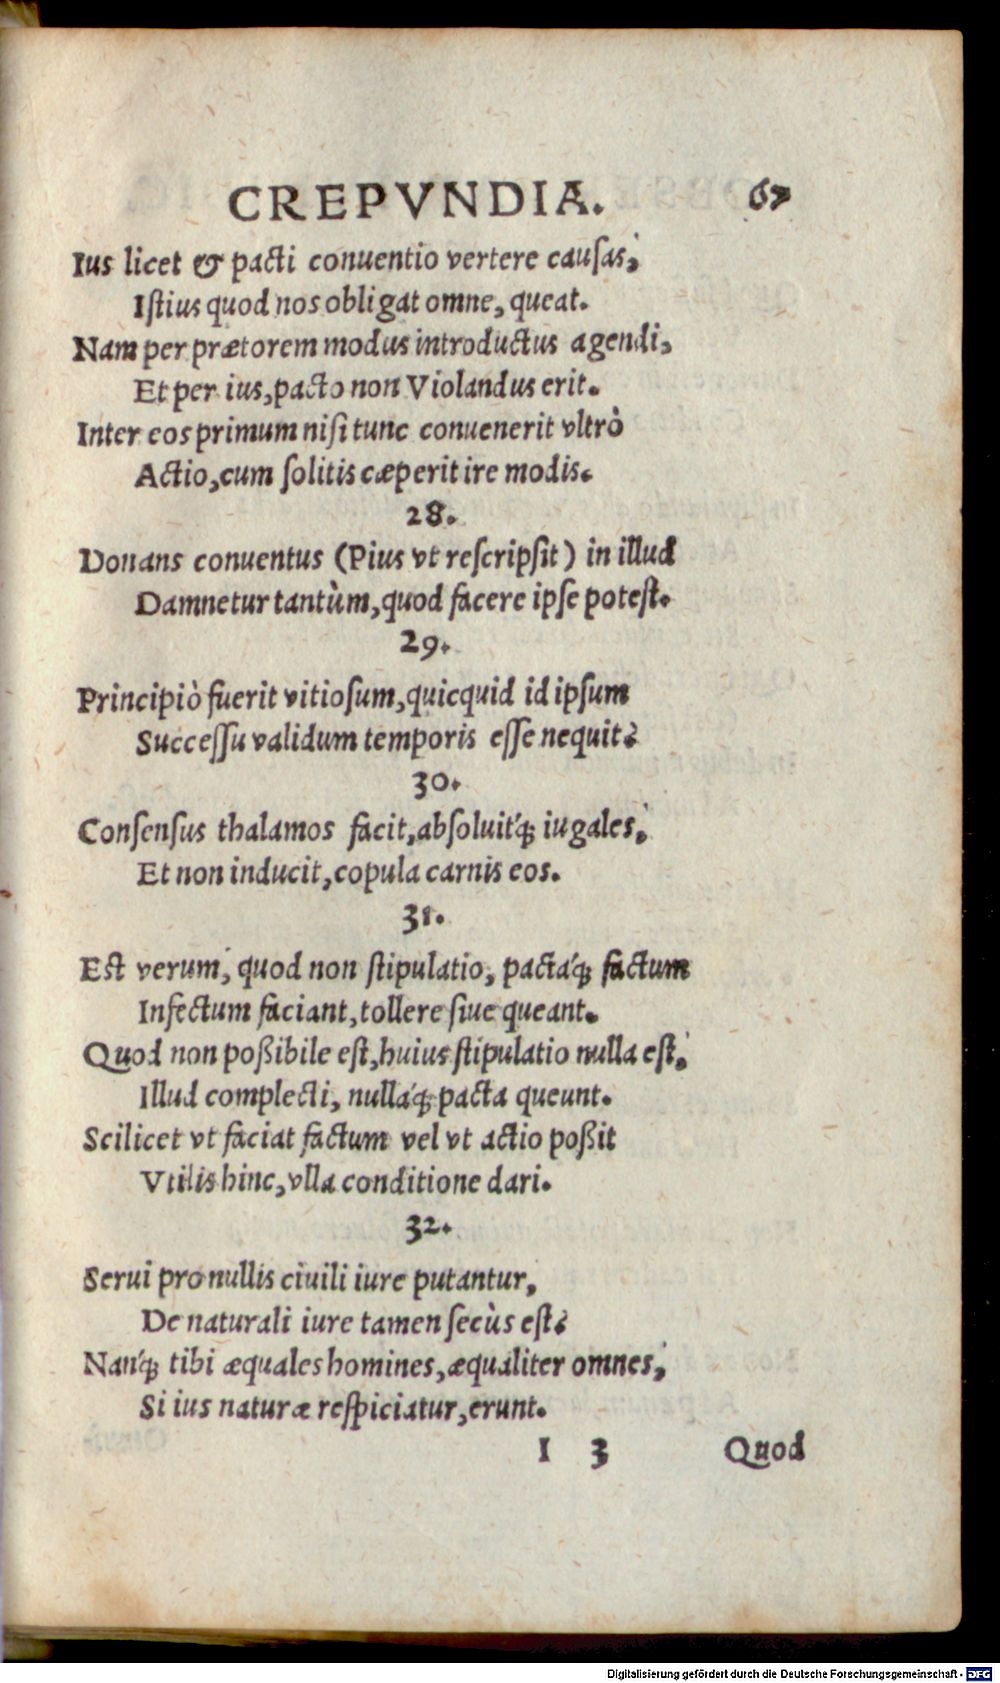 CREPVNDIA. 67
Ius licet & pacti conuentio vertere cauſas;
Iſtius quod nos obligat omne, queat.
Nam per prætorem modus introductus agendi,
Et per ius, pacto non Violandus erit.
Inter eos primum niſi tunc conuenerit vltrò
Actio, cum ſolitis cæperit ire modis.
28.
Donans conuentus (Pius vt reſcripſit) in illud
Damnetur tantùm, quod facere ipſe poteſt.
29.
Principiò fuerit vitioſum, quicquid id ipſum
Succeſſu validum temporis eſſe nequit?
30.
Conſenſus thalamos facit, abſoluitq́; iugales;
Et non inducit, copula carnis eos.
31.
Est verum, quod non ſtipulatio, pactaq́; factum
Infectum faciant, tollere ſiue queant.
Quod non poßibile eſt, huius ſtipulatio nulla eſt;
Illud complecti, nullaq́; pacta queunt.
Scilicet vt faciat factum vel vt actio poßit
Vtilis hinc, vlla conditione dari.
32.
Serui pro nullis ciuili iure putantur,
De naturali iure tamen ſecùs eſt?
Nanq́; tibi æquales homines, æqualiter omnes;
Si ius naturæ reſpiciatur, erunt.
I 3 Quod
Digitalisierung gefördert durch die Deutsche Forschungsgemeinschaft - DFG